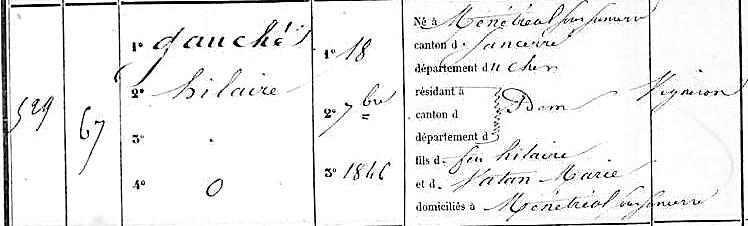 529
67
1º gauché
2º hilaire
3º .
4º 0
1º 18
2º 7bre
3º 1846
Né à Ménétréol sous Sancerre
canton d. Sancerre
département du cher
résidant à
canton d
département d
Idem
fils d. feu hilaire
et d. Vatan Marie
domiciliés à Ménétréol sous Sancerre
Vigneron